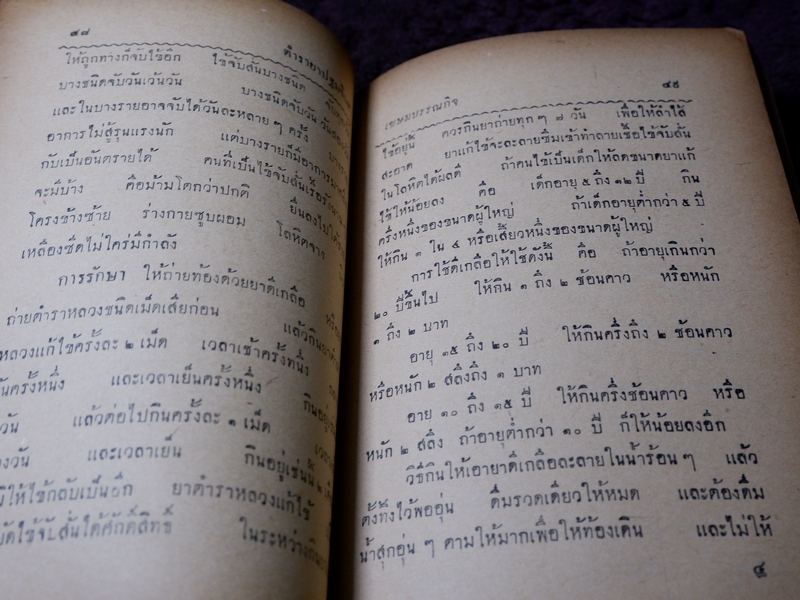 ๔๘
ตำรายา
ให้ถูกทางก็จับไข้อีก ไข้จับสั่นบางชนิด
บางชนิดจับวันเว้นวัน บางชนิดจับวัน
และในบางรายอาจจับได้วันละหลายๆ ครั้ง
อาการไม่สู้รุนแรงนัก แต่บางรายก็มีอาการ
กับเป็นอันตรายได้ คนที่เป็นไข้จับสั่นเรื้อรัง
จะมีบ้าง คือม้ามโตกว่าปกติ ยื่นลงไปใต้
โครงข้างซ้าย ร่างกายซูบผอม โลหิตจาง
เหลืองซีดไม่ใคร่มีกำลัง
การรักษา ให้ถ่ายท้องด้วยยาดีเกลือ
ถ่ายตำราหลวงชนิดเม็ดเสียก่อน แล้วกินยา
หลวงแก้ไข้ครั้งละ ๒ เม็ด เวลาเช้าครั้งหนึ่ง
ครั้งหนึ่ง และเวลาเย็นครั้งหนึ่ง กินอยู่
วัน แล้วต่อไปกินครั้งละ ๑ เม็ด
วัน และเวลาเย็น กินอยู่เช่นนี้
ให้ไข้กลับเป็นอีก ยาตำราหลวงแก้ไข้
ไข้จับสั่นได้ศักดิ์สิทธิ์ ในระหว่าง
เวชมบรรณกิจ
๔๙
ไข้อยู่นี้ ควรกินยาถ่ายทุกๆ ๗ วัน เพื่อให้ลำไส้
สะอาด ยาแก้ไข้จะละลายซึมเข้าทำลายเชื้อไข้จับสั่น
ในโลหิตได้ผลดี ถ้าคนไข้เป็นเด็กให้ลดขนาดยาแก้
ไข้ให้น้อยลง คือ เด็กอายุ ๕ ถึง ๑๒ ปี กิน
ครึ่งหนึ่งของขนาดผู้ใหญ่ ถ้าเด็กอายุต่ำกว่า ๕ ปี
ให้กิน ๑ ใน ๔ หรือเสี้ยวหนึ่งของขนาดผู้ใหญ่
การใช้ดีเกลือให้ใช้ดังนี้ คือ ถ้าอายุเกินกว่า
๒๐ ปีขึ้นไป ให้กิน ๑ ถึง ๒ ช้อนคาว หรือหนัก
๑ ถึง ๒ บาท
อายุ ๑๕ ถึง ๒๐ ปี ให้กินครึ่งถึง ๒ ช้อนคาว
หรือหนัก ๒ สลึงถึง ๑ บาท
อายุ ๑๐ ถึง ๑๕ ปี ให้กินครึ่งช้อนคาว หรือ
หนัก ๒ สลึง ถ้าอายุต่ำกว่า ๑๐ ปี ก็ให้น้อยลงอีก
วิธีกินให้เอายาดีเกลือละลายในน้ำร้อนๆ แล้ว
ตั้งทิ้งไว้พออุ่น ดื่มรวดเดียวให้หมด และต้องดื่ม
น้ำสุกอุ่น ๆ ตามให้มากเพื่อให้ท้องเดิน และไม่ให้
๔